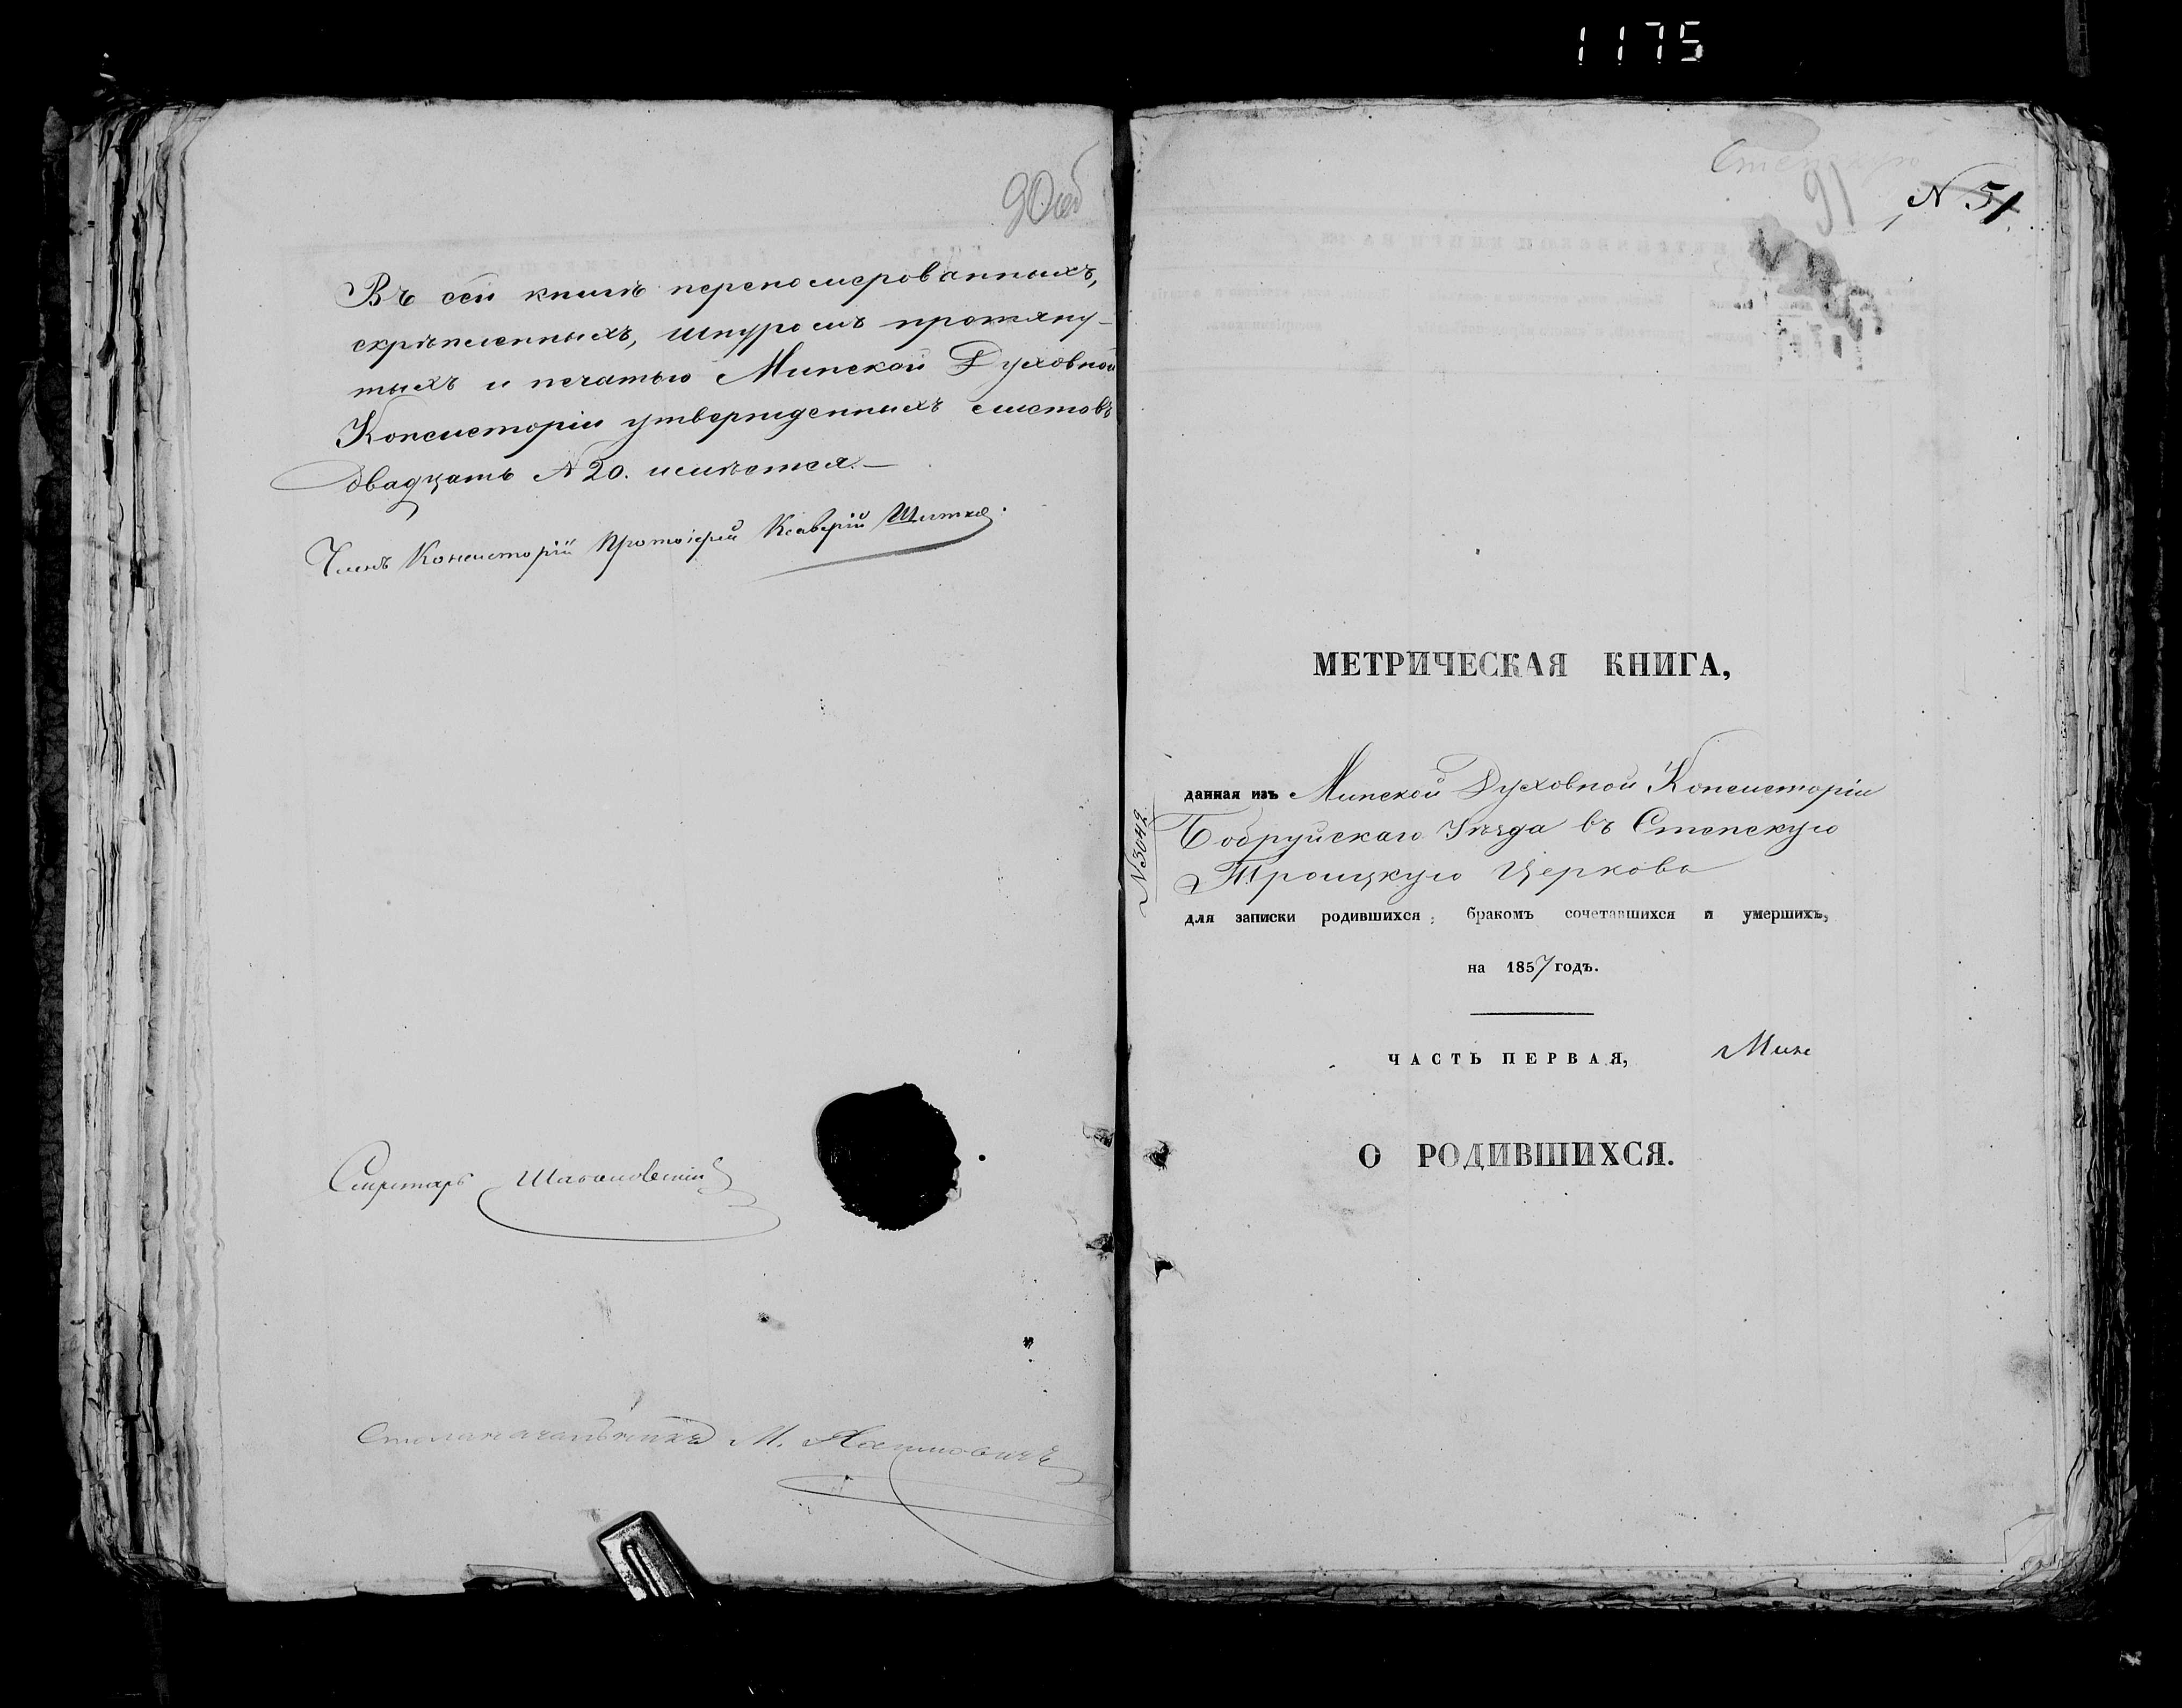 1175
90 об
Въ сей книгѣ перепомерованныхъ,
скрѣпленныхъ, шнуромъ протяну-
тыхъ и печатью Минской Духовной
Консисторіи утвержденныхъ листовъ
двадцать N 20. имѣется.—
Членъ Консисторіи Протоіерей Ксаверій
Секретарь
Столоначальникъ М.
91
N 51
МЕТРИЧЕСКАЯ КНИГА,
данная изъ Минской Духовной Консисторіи
Бобруйскаго Уѣзда въ Степскую
Троицкую Церковь
N 3042.
для записки родившихся, бракомъ сочетавшихся и умершихъ,
на 1857 годъ.
ЧАСТЬ ПЕРВАЯ,
Мин
О РОДИВШИХСЯ.